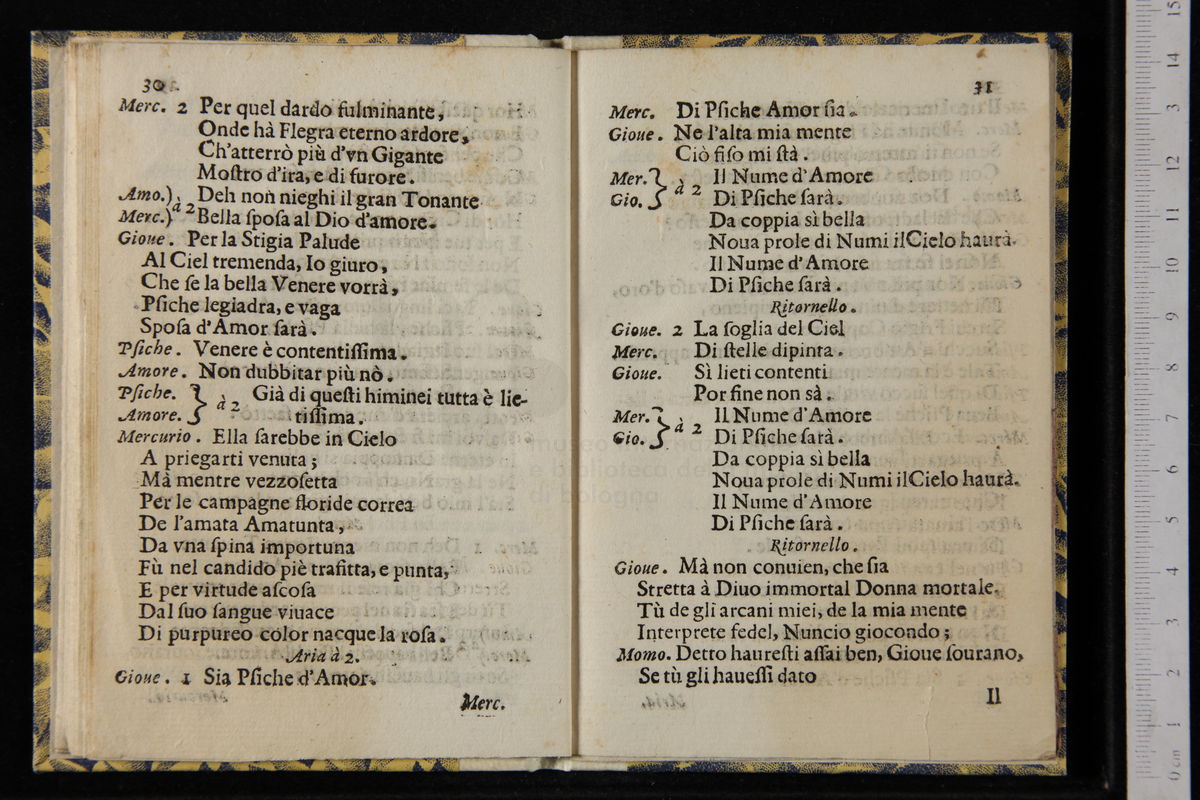 30
Merc. 2 Per quel dardo fulminante,
Onde hà Flegra eterno ardore,
Ch'atterrò più d'vn Gigante
Moſtro d'ira, e di furore.
Amo.) à 2 Deh non nieghi il gran Tonante
Merc.) Bella ſpoſa al Dio d'amore.
Gioue. Per la Stigia Palude
Al Ciel tremenda, Io giuro,
Che ſe la bella Venere vorrà,
Pſiche legiadra, e vaga
Spoſa d'Amor ſarà.
Pſiche. Venere è contentiſſima.
Amore. Non dubbitar più nò.
Pſiche. } à 2 Già di queſti himinei tutta è lie-
Amore. } tiſſima.
Mercurio. Ella ſarebbe in Cielo
A priegarti venuta;
Mà mentre vezzoſetta
Per le campagne floride correa
De l'amata Amatunta,
Da vna ſpina importuna
Fù nel candido piè trafitta, e punta,
E per virtude aſcoſa
Dal ſuo ſangue viuace
Di purpureo color nacque la roſa.
Aria à 2.
Gioue. 1 Sia Pſiche d'Amor.
Merc.
31
Merc. Di Pſiche Amor ſia.
Gioue. Ne l'alta mia mente
Ciò fiſo mi ſtà.
Mer. } à 2 Il Nume d'Amore
Gio. } Di Pſiche ſarà.
Da coppia sì bella
Noua prole di Numi ilCielo haurà.
Il Nume d'Amore
Di Pſiche ſarà.
Ritornello.
Gioue. 2 La ſoglia del Ciel
Merc. Di ſtelle dipinta.
Gioue. Sì lieti contenti
Por fine non sà.
Mer. } à 2 Il Nume d'Amore
Gio. } Di Pſiche ſarà.
Da coppia sì bella
Noua prole di Numi ilCielo haurà.
Il Nume d'Amore
Di Pſiche ſarà.
Ritornello.
Gioue. Mà non conuien, che ſia
Stretta à Diuo immortal Donna mortale.
Tù de gli arcani miei, de la mia mente
Interprete fedel, Nuncio giocondo;
Momo. Detto haureſti aſſai ben, Gioue ſourano,
Se tù gli haueſſi dato
Il
museo
e biblioteca de
di bologna
0 cm 1 2 3 4 5 6 7 8 9 10 11 12 13 14 15